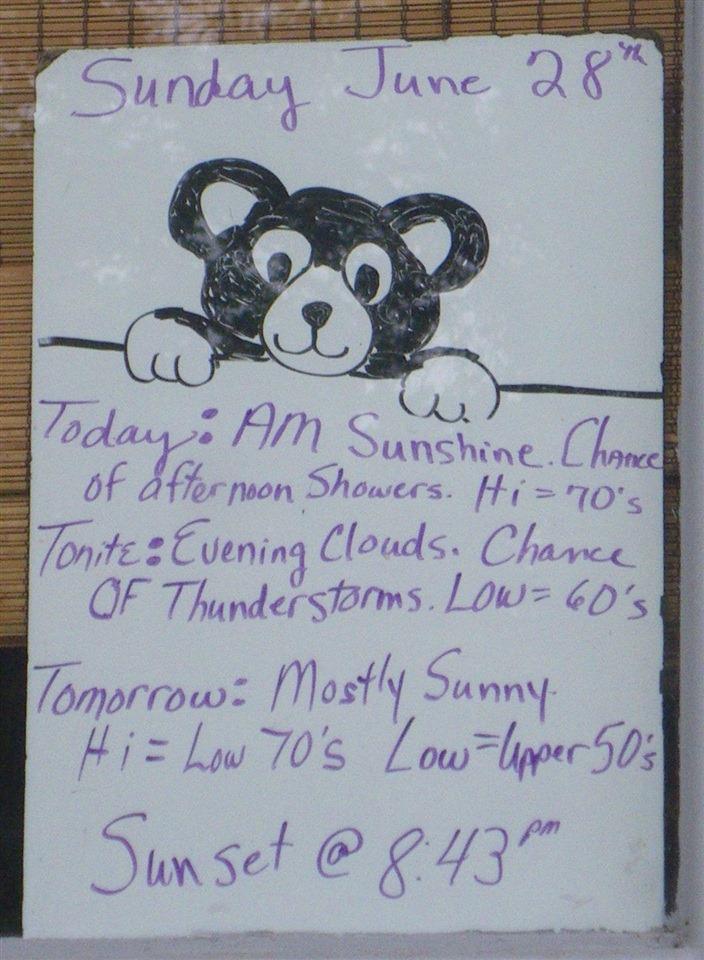 Sunday June 28th
Today: AM Sunshine. Chance
of afternoon Showers. Hi = 70's
Tonite: Evening Clouds. Chance
OF Thunderstorms. Low = 60's
Tomorrow: Mostly Sunny.
Hi = Low 70's Low = Upper 50's
Sunset @ 8:43 pm